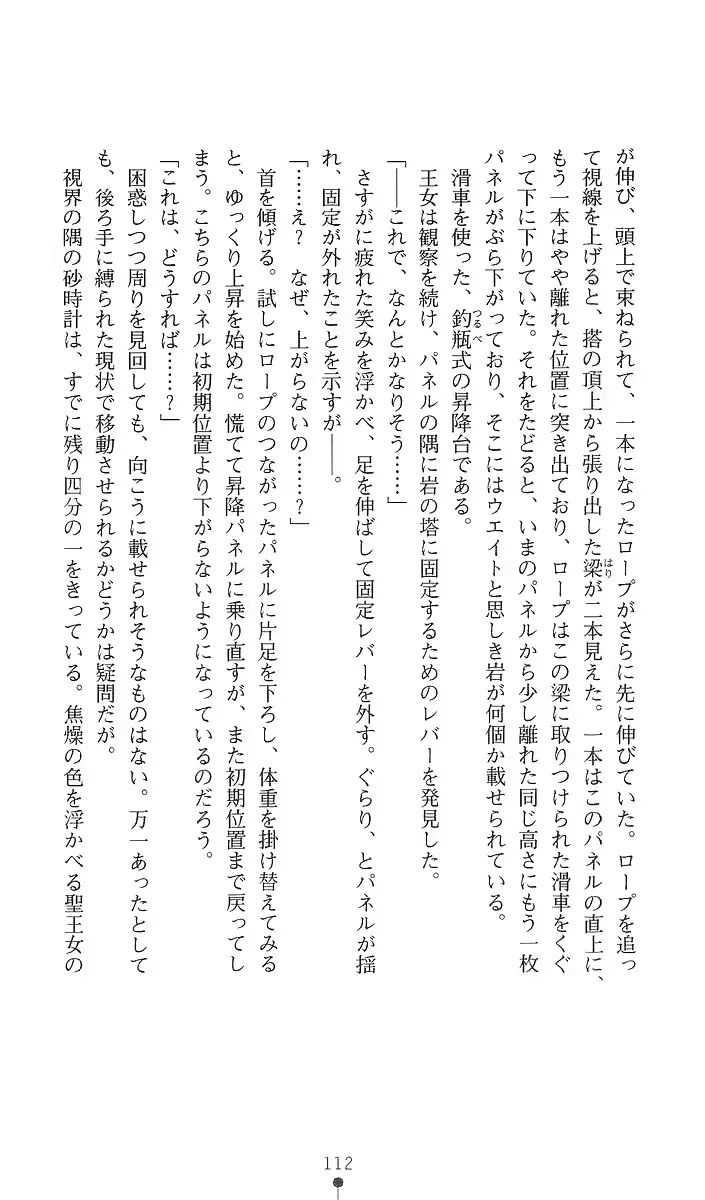 が伸び、頭上で束ねられて、一本になったロープがさらに先に伸びていた。ロープを追っ
て視線を上げると、塔の頂上から張り出した梁が二本見えた。一本はこのパネルの直上に、
はり
もう一本はやや離れた位置に突き出ており、ロープはこの梁に取りつけられた滑車をくぐ
って下に下りていた。それをたどると、いまのパネルから少し離れた同じ高さにもう一枚
パネルがぶら下がっており、そこにはウエイトと思しき岩が何個か載せられている。
滑車を使った、釣瓶式の昇降台である。
つるべ
王女は観察を続け、パネルの隅に岩の塔に固定するためのレバーを発見した。
「――これで、なんとかなりそう……」
さすがに疲れた笑みを浮かべ、足を伸ばして固定レバーを外す。ぐらり、とパネルが揺
れ、固定が外れたことを示すが――。
「……え?　なぜ、上がらないの……?」
首を傾げる。試しにロープのつながったパネルに片足を下ろし、体重を掛け替えてみる
と、ゆっくり上昇を始めた。慌てて昇降パネルに乗り直すが、また初期位置まで戻ってし
まう。こちらのパネルは初期位置より下がらないようになっているのだろう。
「これは、どうすれば……?」
困惑しつつ周りを見回しても、向こうに載せられそうなものはない。万一あったとして
も、後ろ手に縛られた現状で移動させられるかどうかは疑問だが。
視界の隅の砂時計は、すでに残り四分の一をきっている。焦燥の色を浮かべる聖王女の
112